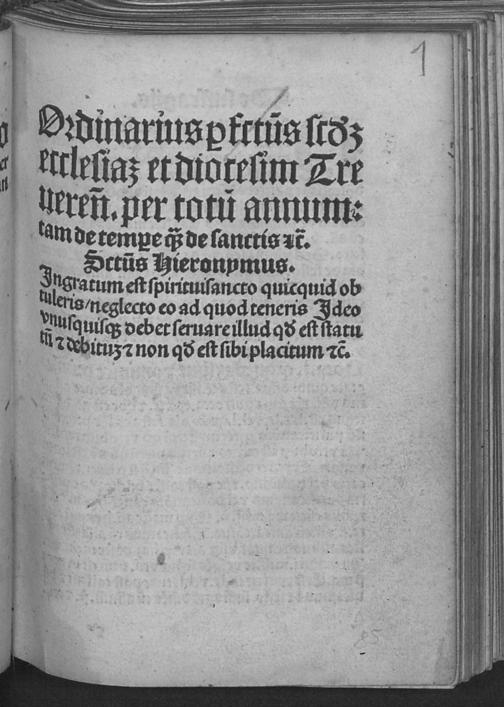 1
Ordinarius ꝑfctūs scd̄ꝫ
ecclesiaꝫ et diocesim Tre
ueren̄. per totū annum:
tam de tempe qꝫ̄ de sanctis ⁊c̄.
Sctūs Hieronymus.
Ingratum est spirituisancto quicquid ob
tuleris/neglecto eo ad quod teneris Ideo
vnusquisqꝫ debet seruare illud qd̄ est statu
tū ⁊ debituꝫ ⁊ non qd̄ est sibi placitum ⁊c̄.